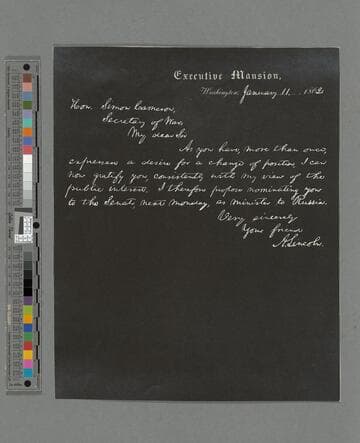 Executive Mansion,
Washington, January 11, 1862
Hon. Simon Cameron,
Secretary of War,
My dear Sir
As you have, more than once,
expressed a desire for a change of position, I can
now gratify you, consistently with my view of the
public interest. I therefore propose nominating you
to the Senate, next Monday, as minister to Russia.
Very sincerely
Your friend
A. Lincoln.